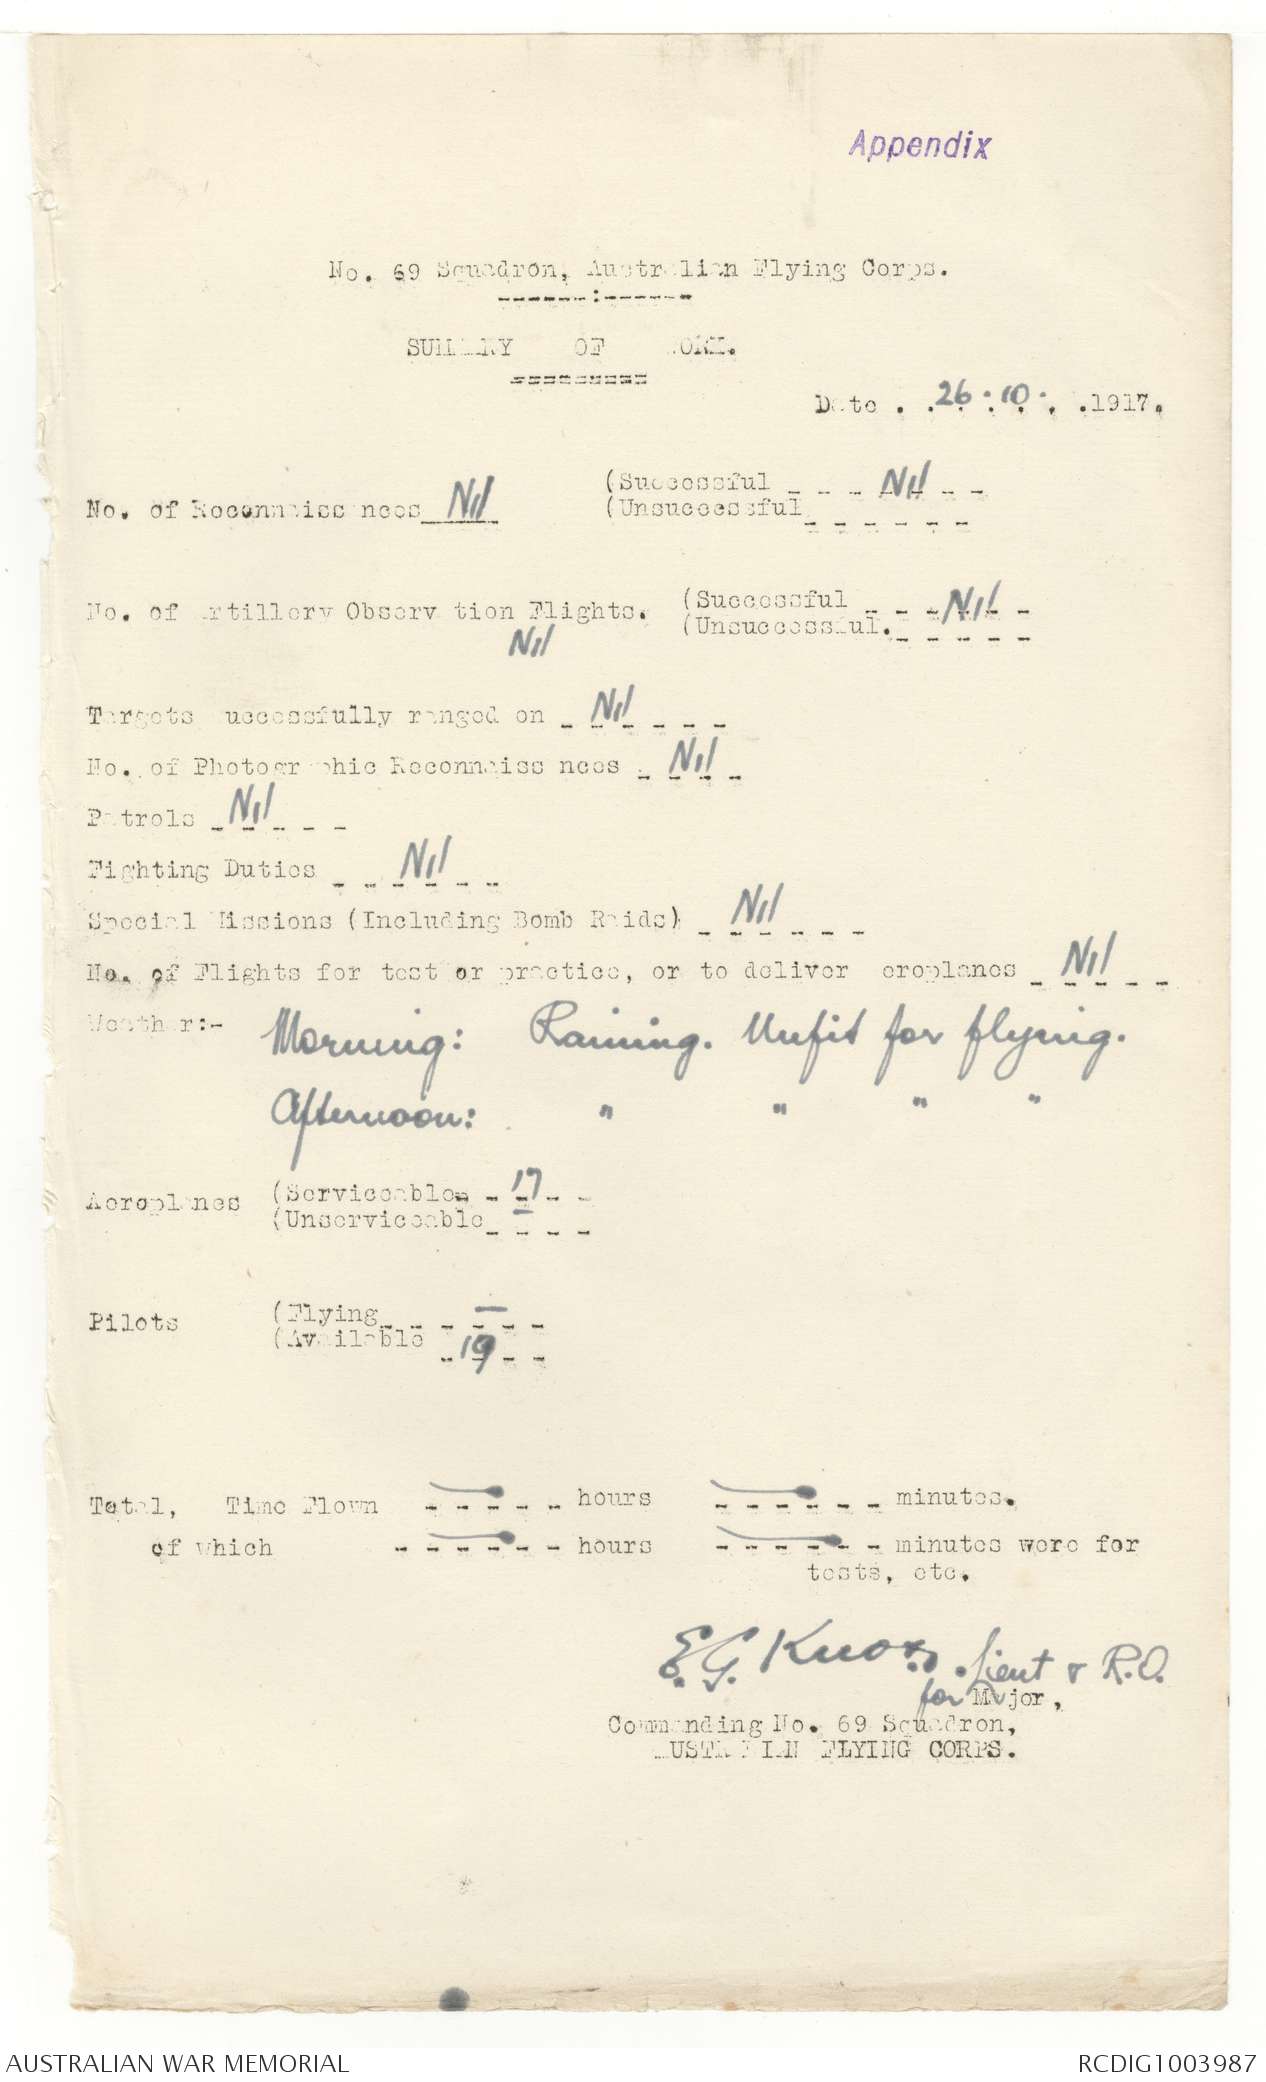 Appendix
No. 69 Squadron, Australian Flying Corps.
------:------
SUMMARY OF WORK.
=========
Date . . 26.10. . .1917.
No. of Reconnaissances Nil (Successful - - - Nil - -
(Unsuccessful - - - - - -
No. of Artillery Observation Flights. Nil (Successful - - - Nil - -
(Unsuccessful. - - - - -
Targets successfully ranged on - Nil - - - -
No. of Photographic Reconnaissances - Nil - -
Patrols - Nil - - -
Fighting Duties - - Nil - - -
Special Missions (Including Bomb Raids) - Nil - - - -
No. of Flights for test or practice, or to deliver aeroplanes - Nil - - -
Weather:- Morning: Raining. Unfit for flying.
Afternoon: " " " "
Aeroplanes (Serviceable - - 17 - -
(Unserviceable - – - -
Pilots (Flying - - - – - -
(Available - 19 - -
Total, Time Flown - - - - - hours - - - - - - minutes.
of which - - - - - - hours - - - - - - minutes were for
tests, etc.
E.G. Knox. Lieut & R.O.
for Major,
Commanding No. 69 Squadron,
AUSTRALIAN FLYING CORPS.
AUSTRALIAN WAR MEMORIAL
RCDIG1003987